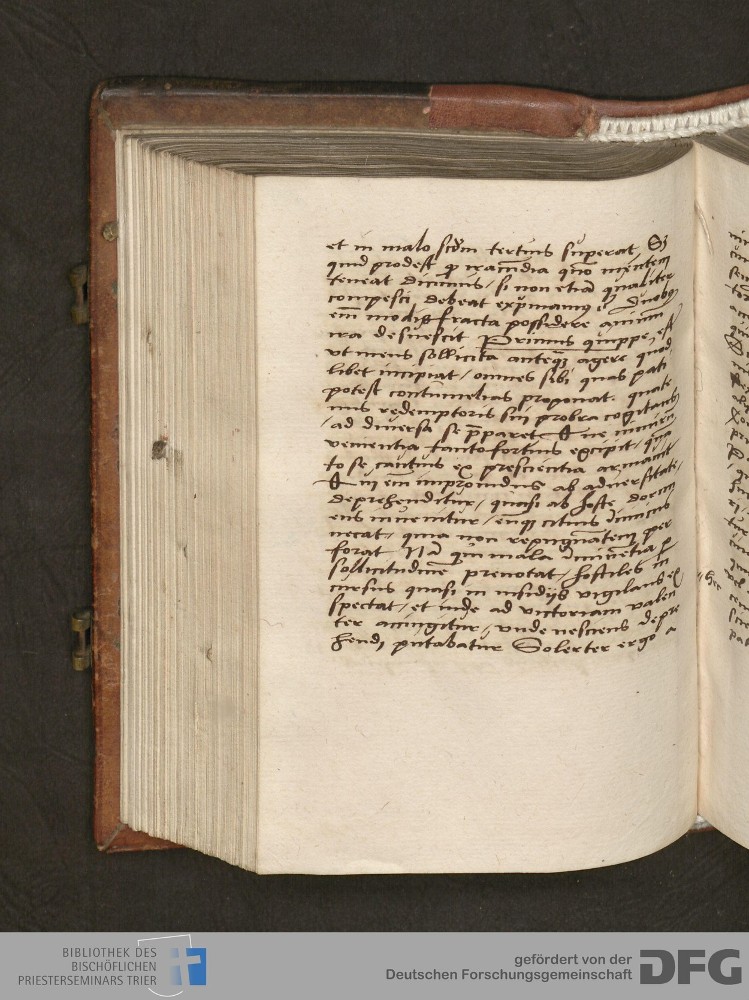 et in malo scdm tertius superat Sz
quid prodest qp iracundia quo mentem
teneat dicimus / si non etiā qualiter
compesci debeat exprimamus Duobus
em̄ modis fracta possidere animū
ira desuescit Primus quippe est
vt mens sollicita anteqz agere quod
libet incipiat / omnes sibi quas pati
potest contumelias proponat. quate
nus redemptoris sui probra cogitans
/ ad diuersa se p̄paret Q ne
venientia tanto fortius excipit / qua
to se cautius ex prescientia armauit
Qui em̄ improuidus ab aduersitate
deprehenditur / quasi ab hoste dormi
ens inuenitur / eumqz citius inimicus
necat / quia non repugnatem per
forat Nā qui mala iminētia p
sollicitudinē prenotat / hostiles in
cursus quasi in insidijs vigilans ex
spectat / et inde ad victoriam valen
ter accingitur / vnde nesciens depre
hendi putabatur Solerter ergo a
BIBLIOTHEK DES
BISCHÖFLICHEN
PRIESTERSEMINARS TRIER
gefördert von der
Deutschen Forschungsgemeinschaft
DFG